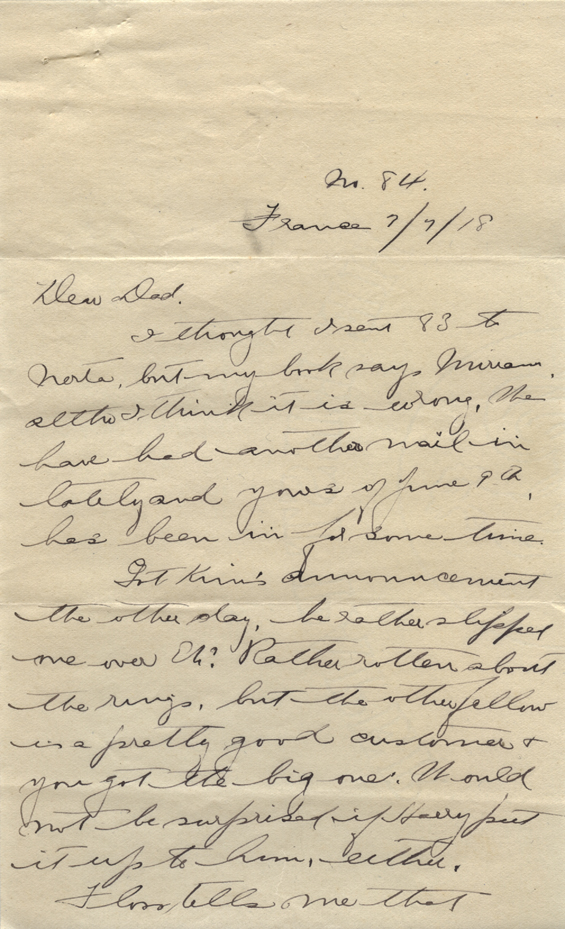 No. 84.
France 7/7/18
Dear Dad.
I thought I sent 83 to
Norta, but my book says Miriam,
altho I think it is wrong. We
have had another mail in
lately and yours of June 9th,
has been in for some time.
Got Kim's announcement
the other day, he rather slipped
me over Eh? Rather rotten about
the rings, but the other fellow
is a pretty good customer &
you got the big one. Would
not be surprised if Harry put
it up to him, either.
Floss tells me that